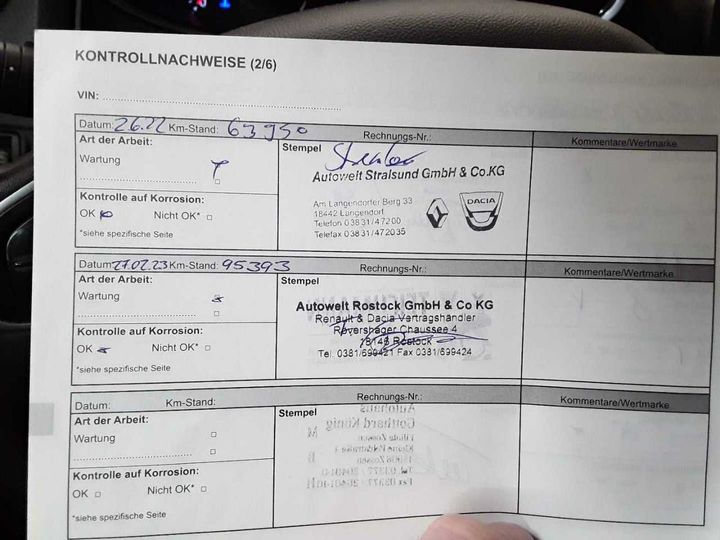 KONTROLLNACHWEISE (2/6)
VIN:
Datum: 2.6.22 Km-Stand: 63950 Rechnungs-Nr.: Kommentare/Wertmarke
Art der Arbeit: Stempel
Wartung
Autowelt Stralsund GmbH & Co.KG
Kontrolle auf Korrosion:
Am Langendorfer Berg 33
18442 Langendorf
Telefon 03831/47200
Telefax 03831/472035
DACIA
OK Nicht OK*
*siehe spezifische Seite
Datum: 27.02.23 Km-Stand: 95393 Rechnungs-Nr.: Kommentare/Wertmarke
Art der Arbeit: Stempel
Wartung
Autowelt Rostock GmbH & Co KG
Renault & Dacia Vertragshändler
Rövershäger Chaussee 4
18146 Rostock
Tel. 0381/699421 Fax 0381/699424
Kontrolle auf Korrosion:
OK Nicht OK*
*siehe spezifische Seite
Datum: Km-Stand: Rechnungs-Nr.: Kommentare/Wertmarke
Art der Arbeit: Stempel
Wartung
Kontrolle auf Korrosion:
OK Nicht OK*
*siehe spezifische Seite